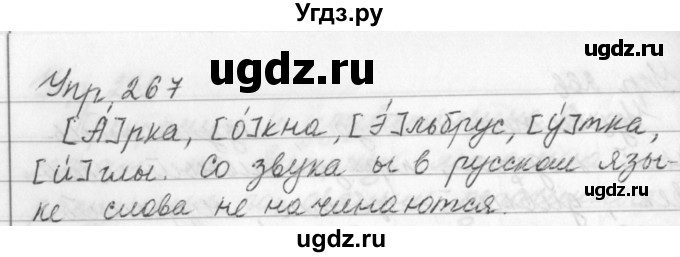 Угдз.ру
ugdz.ru ugdz.ru
Упр, 267 ugdz.ru
[А́]рка, [о́]кна, [э́]льбрус, [у́]тка,
[и́]глы. Со звука ы в русском язы-
ке слова не начинаются.
ugdz.ru ugdz.ru
ugdz.ru